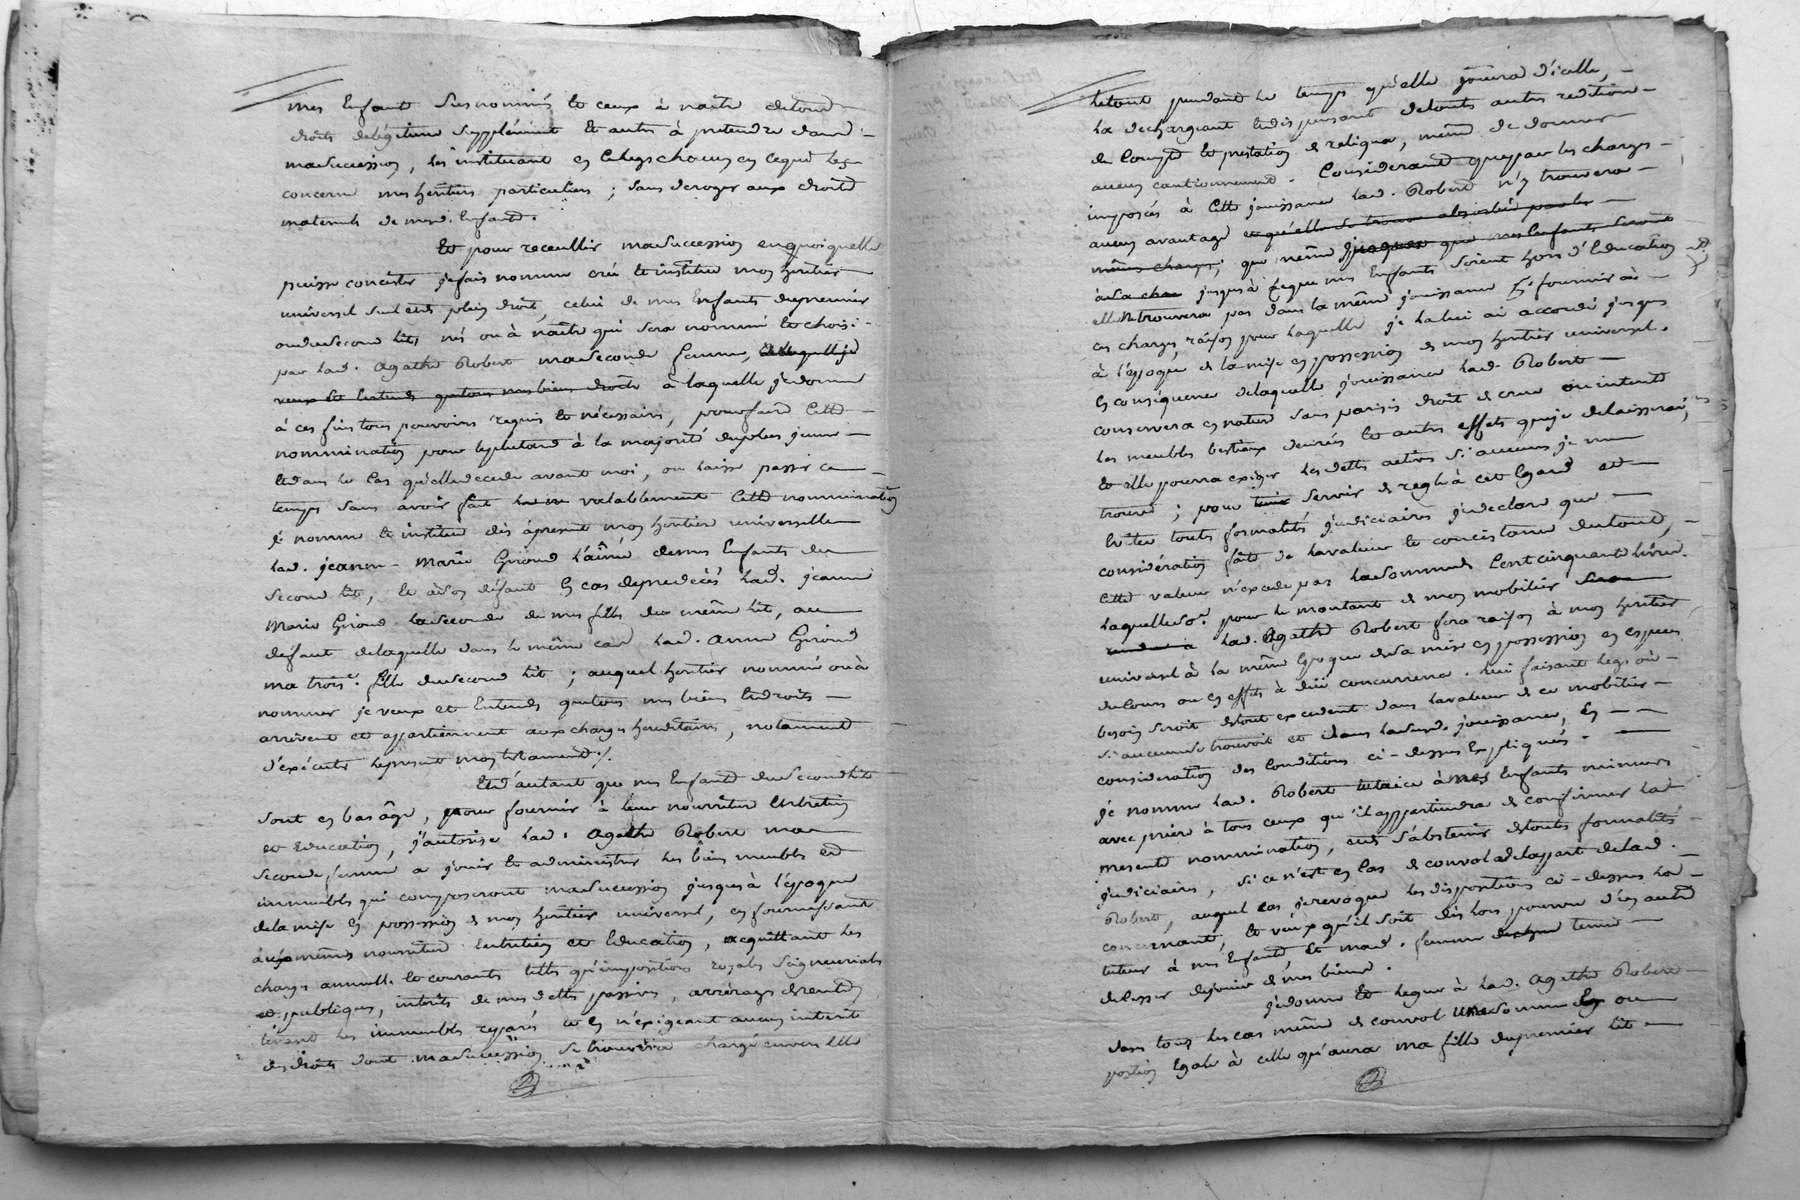 mes Enfant susnommés et ceux à naitre de tous
droits de légitime supplément et autres à pretendre dans
ma succession, les instituant en ce legs chacun en ce qui les
concerne mes heritiers particuliers ; sans deroger aux droits
maternels de mesd. Enfants.
Et pour receuillir ma succession en quoi quelle
puisse concister je fais nomme crée et institue mon heritier
universel seul et de plein droit, celui de mes Enfants du premier
ou du second lit, nés ou à naitre qui sera nommé et choisi
par lad. Agathe Robert ma seconde femme, à laquelle je
veux et entends que tous mes biens droits à laquelle je donne
à ces fins tous pouvoirs requis et nécessaires, pour faire cette
nommination pour le plutard à la majorité du plus jeune
et dans le cas qu'elle decede avant moi, ou laisse passer ce
temps sans avoir fait valablement cette nommination
je nomme et institue dès àpresent mon heritiere universelle
lad. jeanne-Marie Giroud l'ainée de mes Enfants du
second lit, et à son défaut En cas de predécès lad. jeanne
Marie Giroud la seconde de mes filles du même lit, au
défaut de laquelle dans le même cas lad. anne Giroud
ma trois.e fille du second lit ; auquel heritier nommé ou à
nommer je veux et Entends que tous mes biens et droits
arrivent et appartiennent aux charges hereditaires, notament
d'exécuter le present mon testament./.
Et d'autant que mes Enfants du second lit
sont en bas âge, pour fournir à leur nourriture Entretien
et Education, j'autorise lad. Agathe Robert ma
seconde femme a jouir et administrer les biens meubles et
immeubles qui composeront ma succession jusques à l'époque
de la mise en possession de mon heritier universel, en fournissant
à eux mêmes nourriture Entretien et Education, acquittant les
charges annuelles et courants telles qu'impositions royales seigneuriales
et publiques, intérêts de mes dettes passives, arrérages de rentes
tenant les immeubles reparés et en n'exigeant aucun interêt
des droits dont ma succession se trouvera chargée envers elle
le tout pendant le temps qu'elle jouira d'icelle,
la dechargeant et dispensant de toute autre reddition
de Compte et prestation de reliqua, même de donner
aucun cautionnement. Considerant que par les charges
imposées à cette jouissance lad. Robert n'y trouvera
aucun avantage et qu'elle se trouve absorbée par les
mêmes charges; que même que mes Enfants seront
à sa jusques à ce que mes Enfants soient hors d'Education
elle ne trouvera pas dans la même jouissance à fournir à
ces charges, raison pour laquelle je la lui ai accordé jusques
à l'époque de la mise en possession de mon heritier universel.
En conséquence de laquelle jouissance lad. Robert
conservera en nature sans parisis droit de crue ou interet
les meubles bestiaux denrées et autres effets que je delaisserai,
et elle pourra exiger les dettes actives si aucunes je me
trouve ; pour tenir servir de regle à cet Egard et
Eviter toutes formalités judiciaires je declare que
consideration faite de la valeur et concistance du tout,
cette valeur n'excede pas la somme de Cent cinquante livres.
laquelle so.e pour le montant de mon mobilier sera
rendue à lad. Agathe Robert fera raison à mon heritier
universel à la même Epoque de sa mise en possession en especes
de cours ou en effets à düe concurrence. lui faisant legs où
besoin seroit de tout excedent dans la valeur de ce mobilier
si aucun se trouvoit et dans lad. jouissance, En
consideration des Conditions ci-dessus Expliquées.
Je nomme lad. Robert tutrice à mes Enfants mineurs
avec priere à tous ceux qu'il appartiendra de confirmer la
presente nommination, et de s'abstenir de toutes formalités
judiciaires, si ce n'est en Cas de convol de la part de lad.
Robert, auquel cas je revoque les dispositions ci-dessus la
concernant, et veux qu'il soit dès lors pourvu d'un autre
tuteur à mes Enfants et mad. femme tenue
de cesser de jouir de mes biens.
Je donne et legue à lad. Agathe Robert
dans tous les cas même de convol une somme ou
portion Egale à celle qu'aura ma fille du premier lit